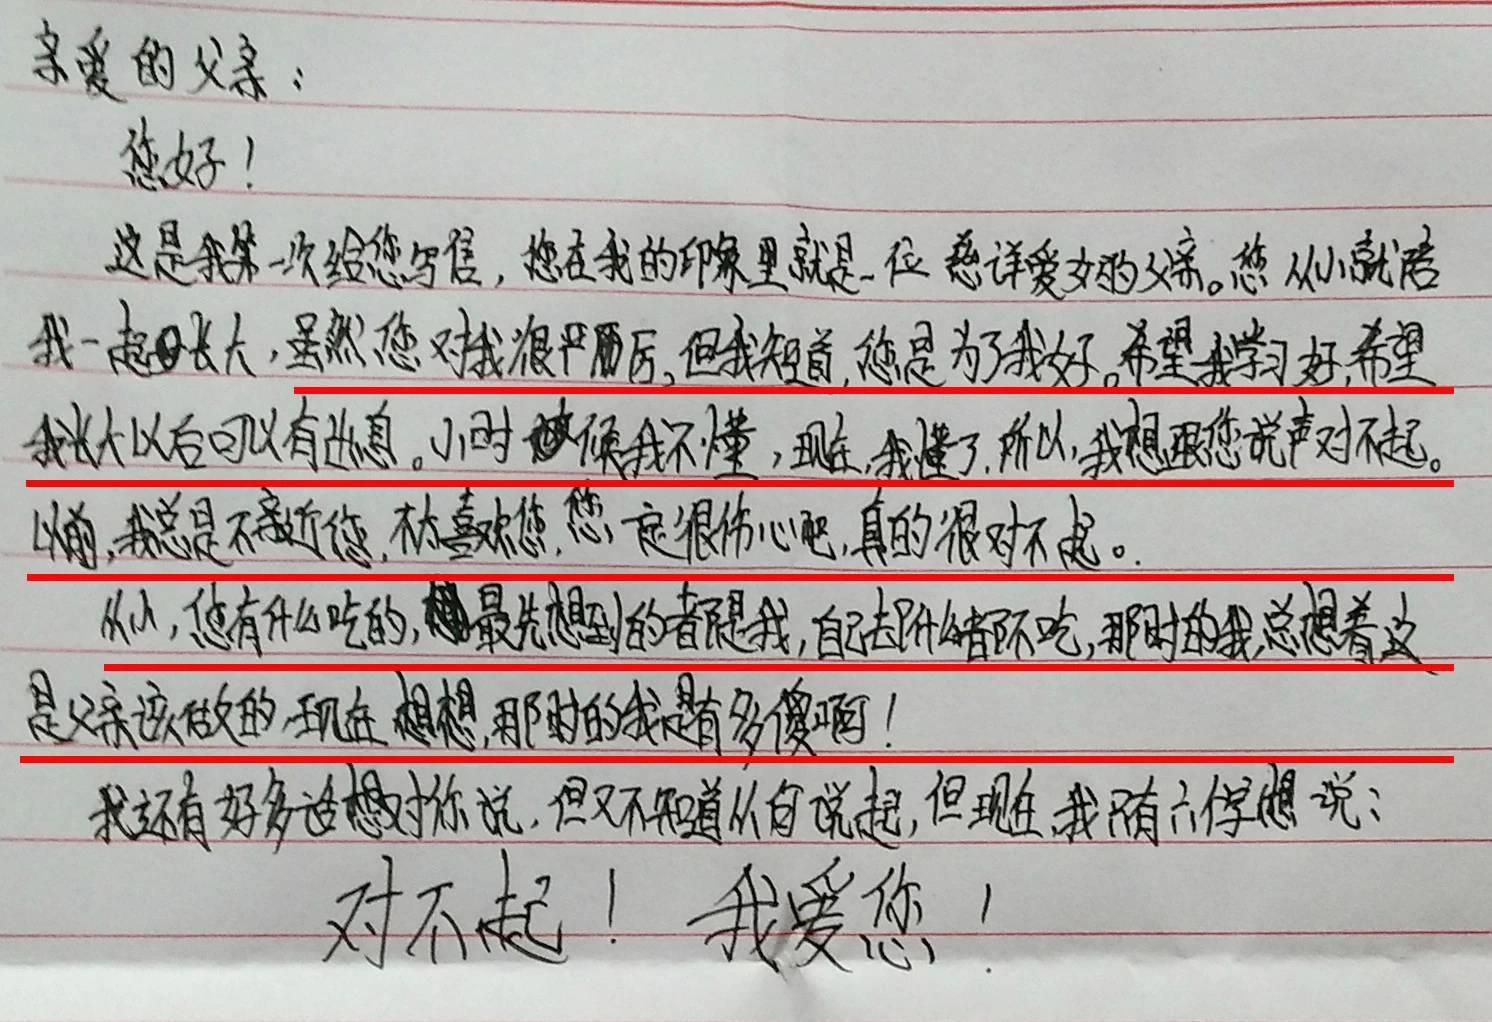 亲爱的父亲：
您好！
这是我第一次给您写信，您在我的印象里就是一位慈详爱女的父亲。您从小就陪
我一起长大，虽然您对我很严厉，但我知道，您是为了我好。希望我学习好，希望
我长大以后可以有出息。小时候我不懂，现在，我懂了，所以，我想跟您说声对不起。
以前，我总是不亲近您，不大喜欢您，您一定很伤心吧，真的很对不起。
从小，您有什么吃的，最先想到的都是我，自己去阝什么都不吃，那时的我，总想着这
是父亲该做的，现在想想，那时的我是有多傻啊！
我还有好多话想对你说，但又不知道从何说起，但现在，我只有六个字想说：
对不起！我爱您！